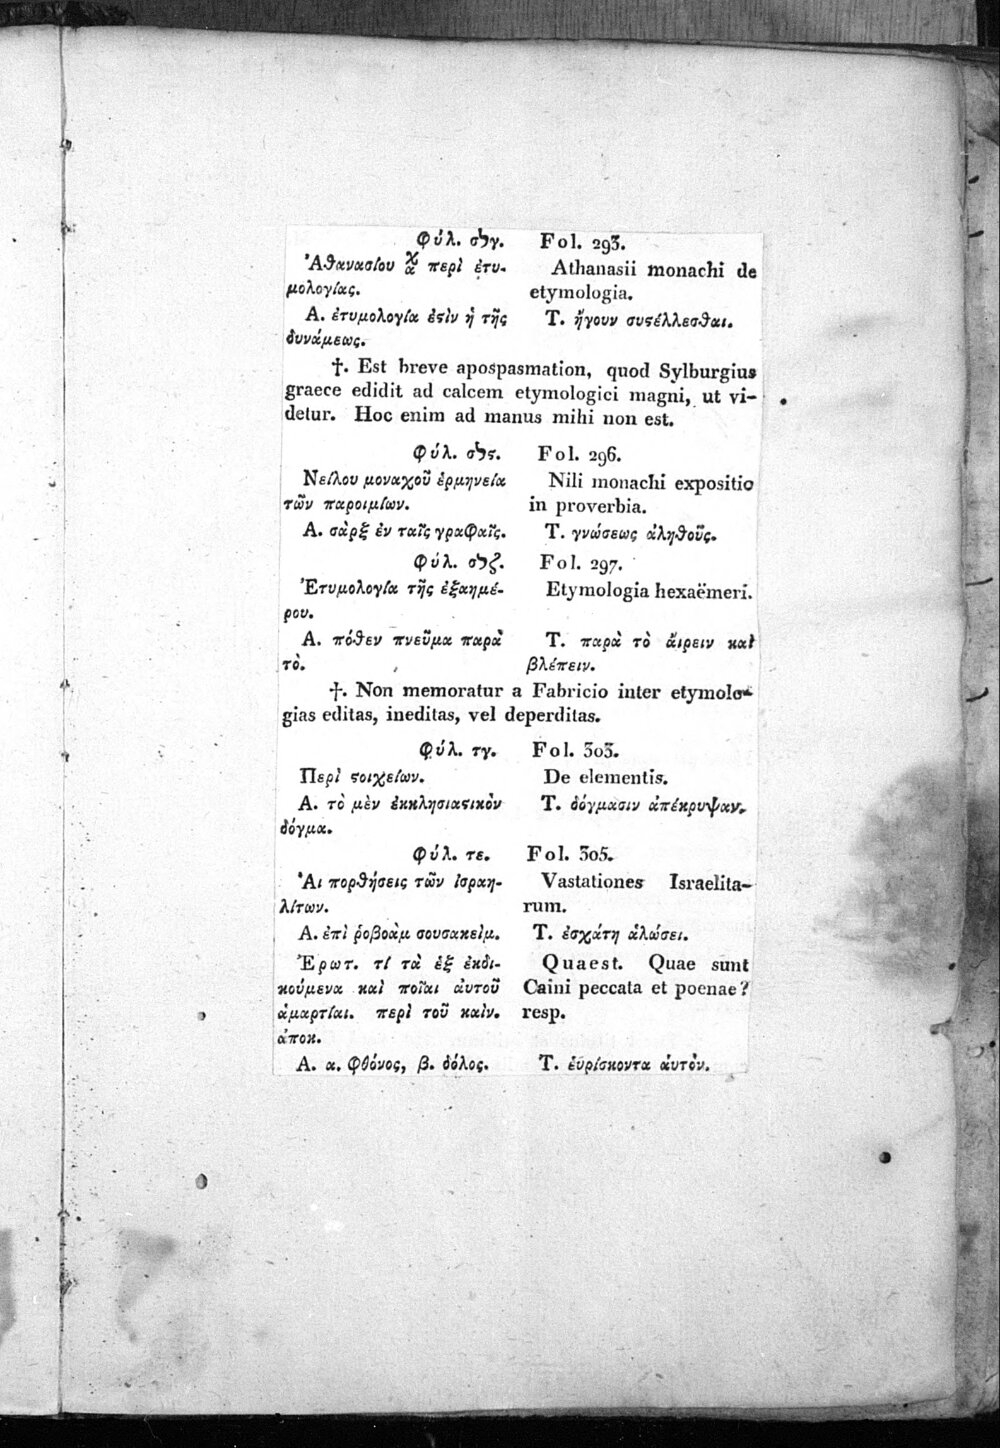 Φύλ. σϟγ. Fol. 293.
Ἀθανασίου χ̅α περὶ ἐτυ- Athanasii monachi de
μολογίας. etymologia.
Α. ἐτυμολογία ἐϛὶν ἡ τῆς Τ. ἤγουν συϛέλλεσθαι.
δυνάμεως.
†. Est breve apospasmation, quod Sylburgius
graece edidit ad calcem etymologici magni, ut vi-
detur. Hoc enim ad manus mihi non est.
Φύλ. σϟϛ. Fol. 296.
Νείλου μοναχοῦ ἑρμηνεία Nili monachi expositio
τῶν παροιμίων. in proverbia.
Α. σὰρξ ἐν ταῖς γραφαῖς. Τ. γνώσεως ἀληθοῦς.
Φύλ. σϟζ. Fol. 297.
Ἐτυμολογία τῆς ἑξαημέ- Etymologia hexaëmeri.
ρου.
Α. πόθεν πνεῦμα παρὰ Τ. παρὰ τὸ ἄιρειν καὶ
τό. βλέπειν.
†. Non memoratur a Fabricio inter etymolo-
gias editas, ineditas, vel deperditas.
Φύλ. τγ. Fol. 303.
Περὶ ϛοιχείων. De elementis.
Α. τὸ μὲν ἐκκλησιαϛικὸν Τ. δόγμασιν ἀπέκρυψαν.
δόγμα.
Φύλ. τε. Fol. 305.
Ἁι πορθήσεις τῶν ἰσραη- Vastationes Israelita-
λίτων. rum.
Α. ἐπὶ ῥοβοὰμ σουσακεὶμ. Τ. ἐσχάτη ἁλώσει.
Ἐρωτ. τί τὰ ἑξ ἐκδι- Quaest. Quae sunt
κούμενα καὶ ποῖαι ἀυτοῦ Caini peccata et poenae?
ἁμαρτίαι. περὶ τοῦ καὶν. resp.
ἀποκ.
Α. α. φθόνος, β. δόλος. Τ. ἑυρίσκοντα ἀυτόν.